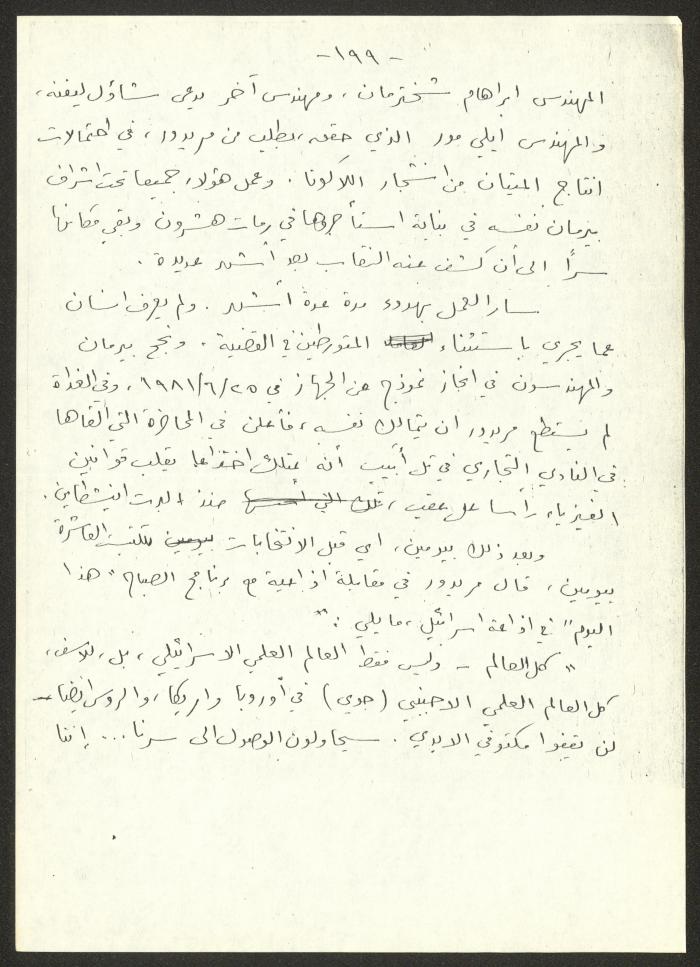 - ١٩٩ -
المهندس ابراهام شختزمان، ومهندس آخر يدعى شاؤل ليفنه،
والمهندس ايلي مور الذي حقق، بطلب من مريدور، في احتمالات
انتاج الميتان من اشجار اللاكونا. وعمل هؤلاء جميعا تحت اشراف
بيرمان نفسه في بناية استأجروها في رمات هشرون وبقي مكانها
سراً الى أن كشف عنه النقاب بعد أشهر عديدة.
سار العمل بهدوء مدة عدة أشهر. ولم يعرف انسان
عما يجري باستثناء المتورطين في القضية. ونجح بيرمان
والمهندسون في انجاز نموذج عن الجهاز في ١٩٨١/٦/٢٥، وفي الغداة
لم يستطع مريدور ان يتمالك نفسه، فأعلن في المحاضرة التي القاها
في النادي التجاري في تل أبيب أنه يمتلك اختراعا يقلب قوانين
الفيزياء رأسا على عقب، تلك التي أسسها منذ اينشطاين.
وبعد ذلك بيومين، اي قبل الانتخابات بيومين للكنيست العاشرة
بيومين، قال مريدور في مقابلة اذاعية مع برنامج الصباح "هذا
اليوم" في اذاعة اسرائيل، ما يلي: *
"كل العالم - وليس فقط العالم العلمي الاسرائيلي، بل، للاسف،
كل العالم العلمي الاجنبي (جوي) في أوروبا واميركا، والروس ايضا -
لن يقفوا مكتوفي الايدي. سيحاولون الوصول الى سرنا... إننا